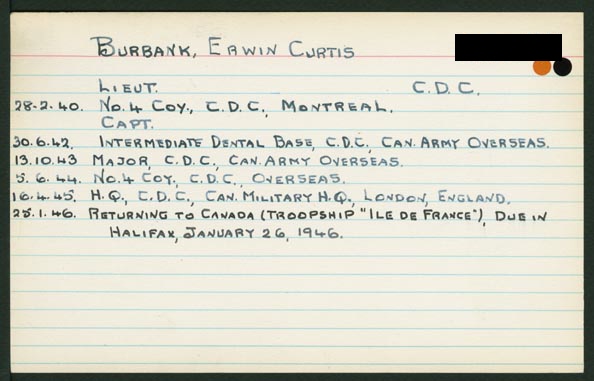 BURBANK, ERWIN CURTIS
LIEUT. C.D.C.
28-2.40. No. 4 COY., C.D.C., MONTREAL.
CAPT.
30.6.42. INTERMEDIATE DENTAL BASE, C.D.C., CAN. ARMY OVERSEAS.
13.10.43 MAJOR, C.D.C., CAN. ARMY OVERSEAS.
5.6.44. No. 4 COY., C.D.C., OVERSEAS.
16.4.45. H.Q., C.D.C., CAN. MILITARY H.Q., LONDON, ENGLAND.
25.1.46. RETURNING TO CANADA (TROOPSHIP "ILE DE FRANCE"), DUE IN
HALIFAX, JANUARY 26, 1946.